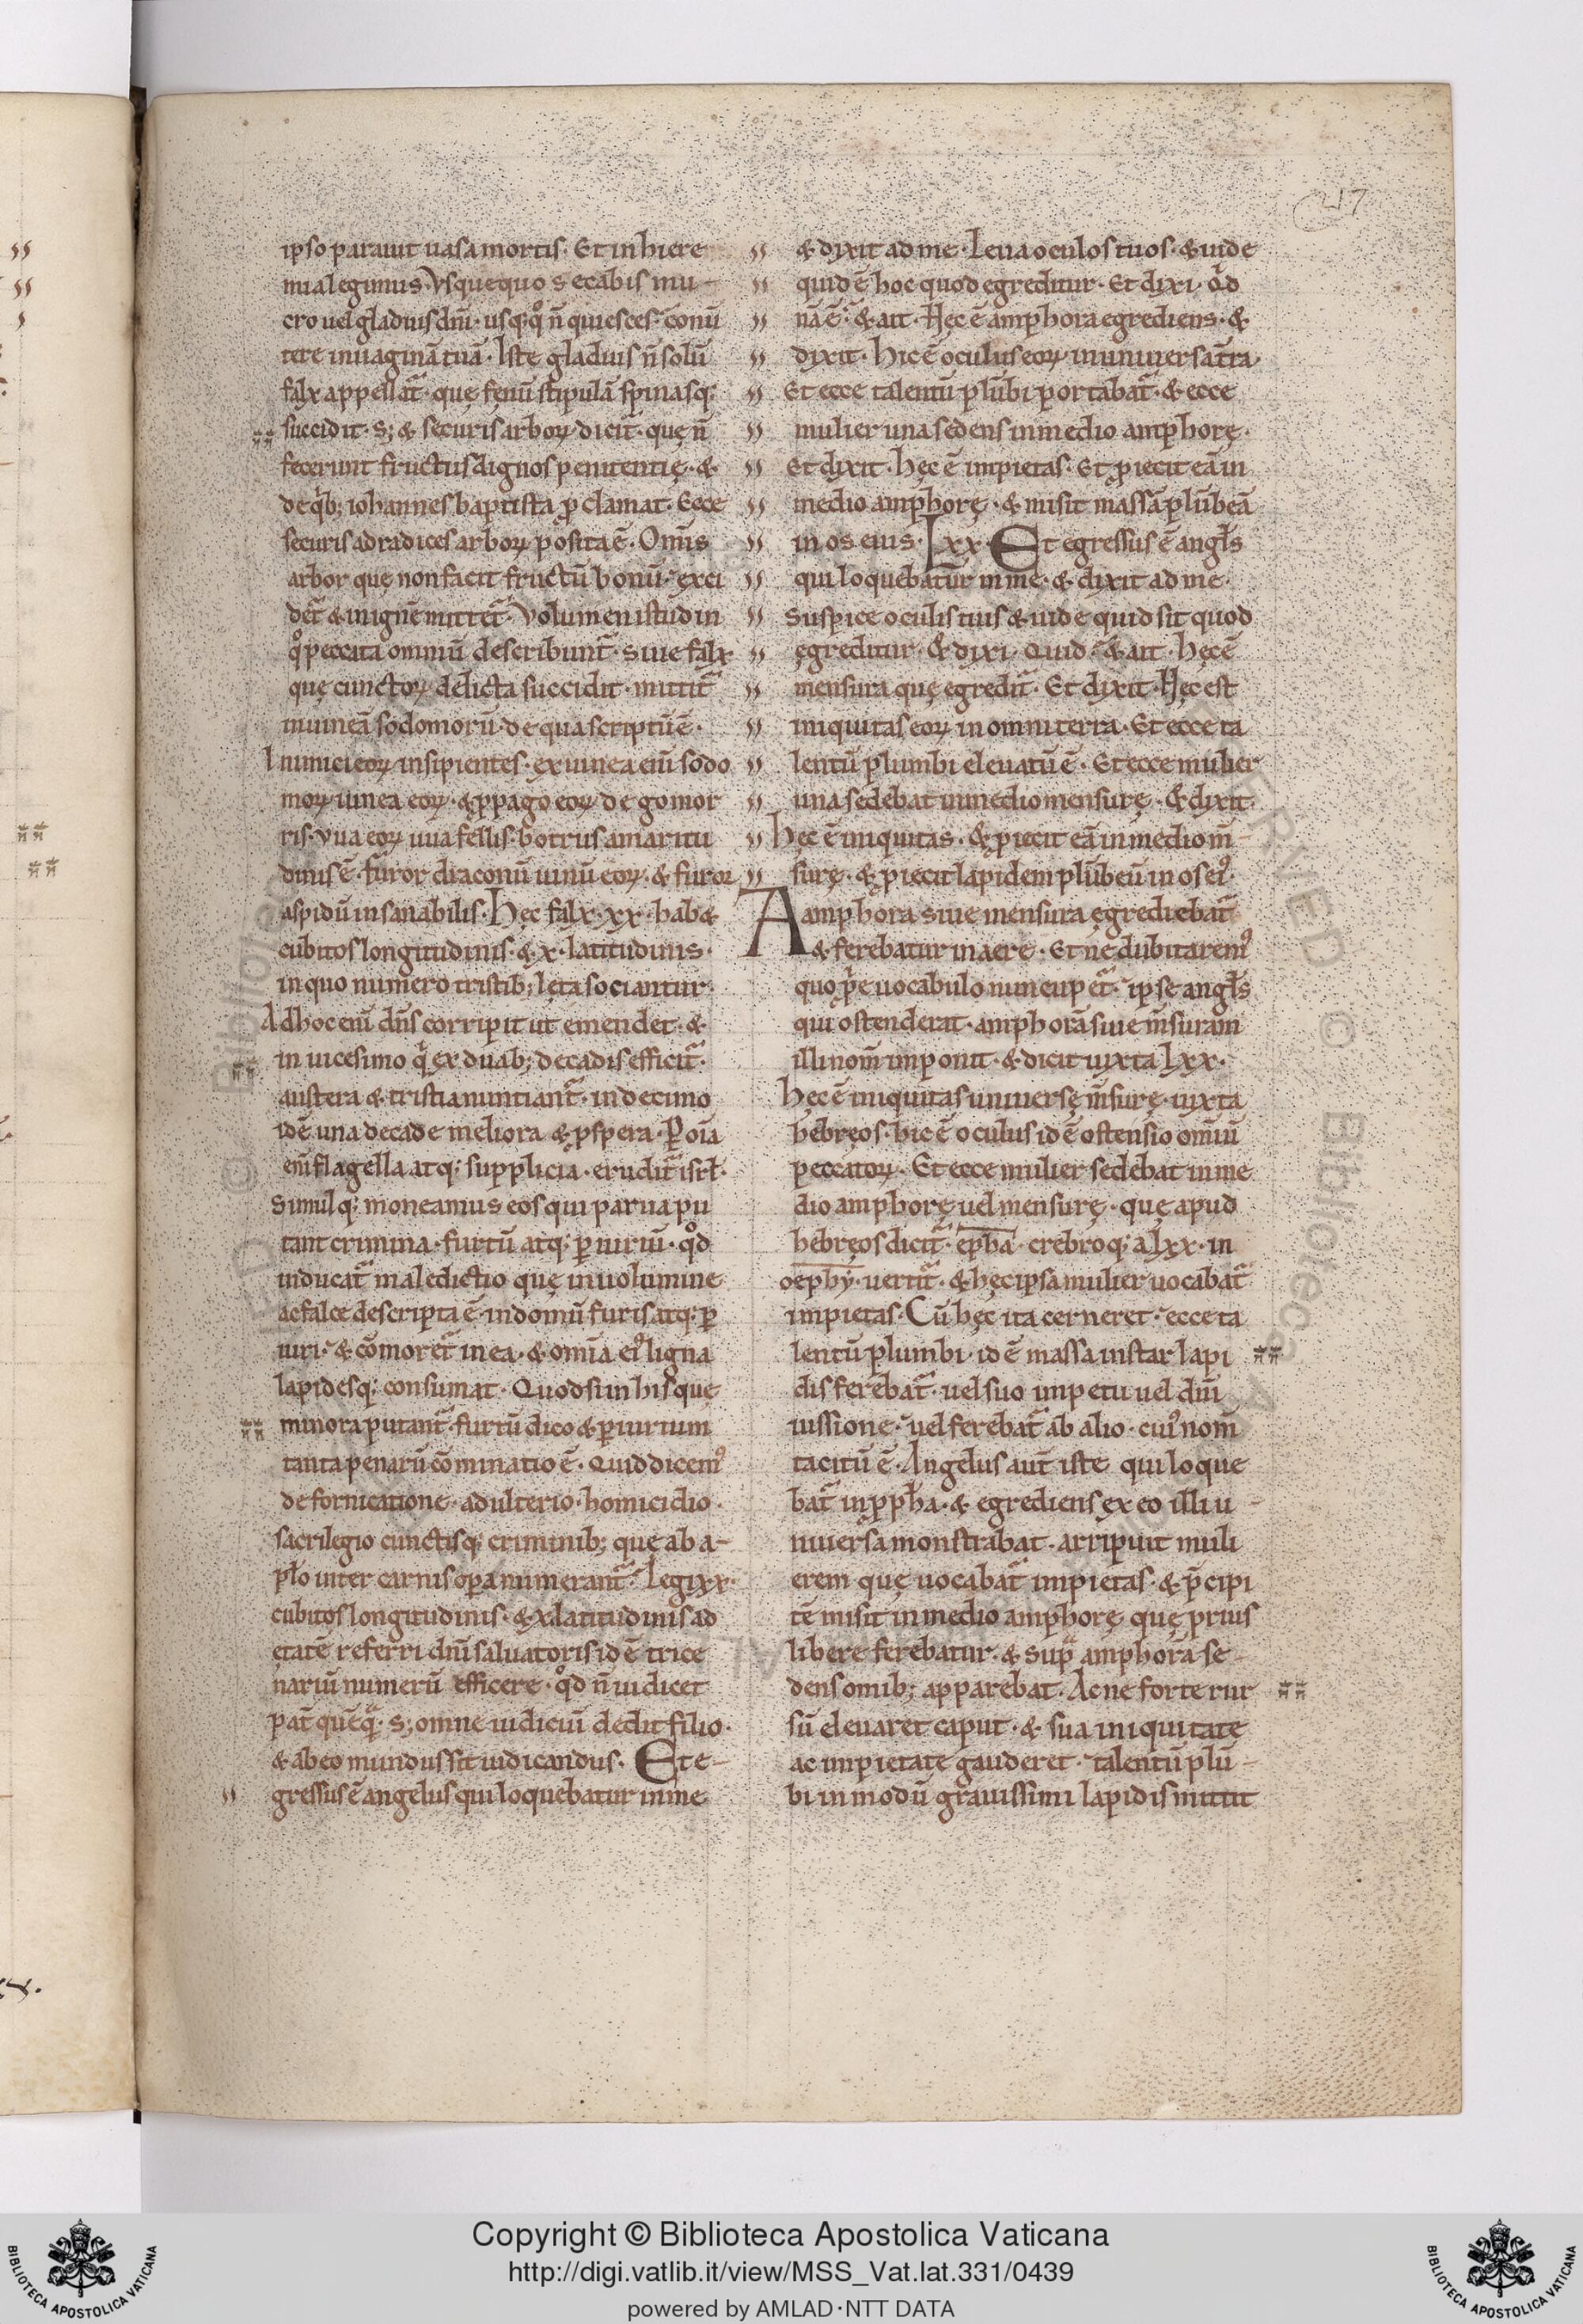 217
ipso parauit uasa mortis. Et in hiere
mia legimus. Vsquequo secabis mu-
cro uel gladius dn̄i. usq; qͦ n̄ quiesces. conū
tere in uaginā tuā. Iste gladius n̄ solū
falx appellat̄. quę fęnū stipulā spinasq;
succidit. s; & securis arboꝝ dicit̄. quę n̄
fecerunt fructus dignos penitentię. &
de qͥb; iohannes baptista ꝓclamat. Ecce
securis ad radices arboꝝ posita ē. Om̄is
arbor quę non facit fructū bonū. exci
det̄ & in ignē mittet̄. Volumen istud in
qͦ peccata omniū describunt̄. siue falx
quę cunctoꝝ delicta succidit. mittit̄
in uineā sodomorū. de qua scriptū ē.
Inimici eoꝝ insipientes. ex uinea eni͂ sodo
moꝝ uinea eoꝝ. & ꝓpago eoꝝ de gomor
ris. Vua eoꝝ uua fellis. botrus amaritu
dinis ē. furor draconū uinū eoꝝ. & furor
aspidū insanabilis. Hęc falx. xx. hab&
cubitos longitudinis. & x. latitudinis.
in quo numero tristib; lęta sociantur.
Ad hoc eni͂ dn̄s corripit ut emendet. &
in uicesimo qͥ ex duab; decadis efficit̄.
austera & tristia nuntiant̄. in decimo
id ē una decade meliora & ꝓspera. Ꝑ oīa
eni͂ flagella atq; supplicia. erudit̄ isrł.
Simulq; moneamus eos qui parua pu
tant crimina. furtū atq; ꝑiuriū. qͦd
inducat̄ maledictio quę in uolumine
ac falce descripta ē in domū furis atq; ꝑ
iuri. & cōmoret̄ in ea. & omīa ei᾽ ligna
lapidesq; consumat. Quod si in his quę
minora putant̄. furtū dico & ꝑiurium
tanta penarū cōminatio ē. Quid dicem᾽
de fornicatione. adulterio. homicidio.
sacrilegio cunctisq; criminib; quę ab a-
pło inter carnis oꝑa numerant̄. Legi xx.
cubitos longitudinis. & x. latitudinis ad
ętatē referri dn̄i saluatoris id ē trice
nariū numerū efficere. qͦd n̄ iudicet
pat̄ quēqͣ. s; omne iudiciū dedit filio.
& ab eo mundus sit iudicandus. Et e-
gressus ē angelus qui loquebatur in me
& dyxit ad me. Leua oculos tuos. & uide
quid ē hoc quod egreditur. Et dixi. qͥd
nā ē. & ait. Hęc ē amphora egrediens. &
dyxit. Hic ē oculus eoꝝ in uniuersa t̄ra.
Et ecce talentū plūbi portabat̄. & ecce
mulier una sedens in medio amphorę.
Et dyxit. hęc ē impietas. Et ꝓiecit eā in
medio amphorę. & misit massā plūbeā
in os eius. Lxx. Et egressus ē angłs
qui loquebatur in me. & dixit ad me.
Suspice oculis tuis & uide quid sit quod
ęgreditur. & dixi. Quid ē. & ait. Hęc ē
mensura quę egredit̄. Et dyxit. Hęc est
iniquitas eoꝝ in omni terra. Et ecce ta
lentū plumbi eleuatū ē. Et ecce mulier
una sedebat in medio mensurę. & dyxit.
hęc ē iniquitas. & ꝓiecit eā in medio m̄-
surę. & ꝓiecit lapidem plūbeū in os ei᾽.
Amphora siue mensura ęgrediebat̄
& ferebatur in aere. Et ne dubitarem᾽
quo ꝓprie uocabulo nuncupet̄. ipse angłs
qui ostenderat. amphorā siue m̄suram
illi nom̄ imponit. & dicit iuxta Lxx.
Hęc ē iniquitas uniuersę m̄surę. iuxta
hebręos. hic ē oculus id ē ostensio om̄iū
peccatoꝝ. Et ecce mulier sedebat in me
dio amphorę uel mensurę. quę apud
hebręos dicit̄. epha. crebroq; a lxx. in
oephy. uertit̄. & hęc ipsa mulier uocabat̄
impietas. Cū hęc ita cerneret. ecce ta
lentū plumbi. id ē massa instar lapi
dis ferebat̄. uel suo impetu uel dn̄i
iussione. uel ferebat̄ ab alio. cui᾽ nom̄
tacitū ē. Angelus aut̄ iste qui loque
bat̄ in ꝓpha. & egrediens ex eo illi u-
niuersa monstrabat. arripuit muli
erem quę uocabat̄ impietas. & p̄cipi
tē misit in medio amphorę quę prius
libere ferebatur. & supͣ amphorā se-
dens omīb; apparebat. Ac ne forte rur
sū eleuaret caput. & sua iniquitate
ac impietate gauderet. talentū plū-
bi in modū grauissimi lapidis mittit
Copyright © Biblioteca Apostolica Vaticana
http://digi.vatlib.it/view/MSS_Vat.lat.331/0439
powered by AMLAD·NTT DATA
BIBLIOTECA APOSTOLICA VATICANA
BIBLIOTECA APOSTOLICA VATICANA